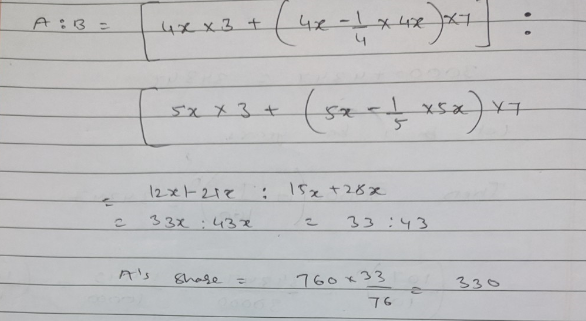 A : B = [ 4x × 3 + ( 4x - 1/4 × 4x ) × 7 ] :
[ 5x × 3 + ( 5x - 1/5 × 5x ) × 7
= 12x + 21x : 15x + 28x
= 33x : 43x = 33 : 43
A's share = 760 × 33/76 = 330